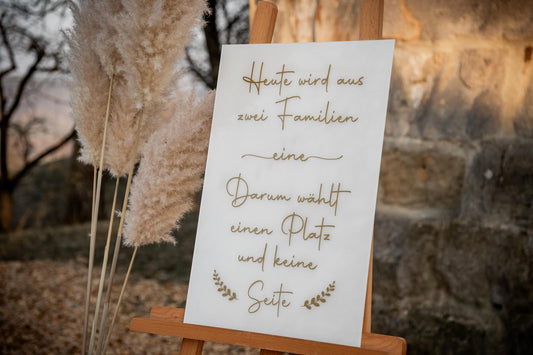 Heute wird aus
zwei Familien
eine
Darum wählt
einen Platz
und keine
Seite